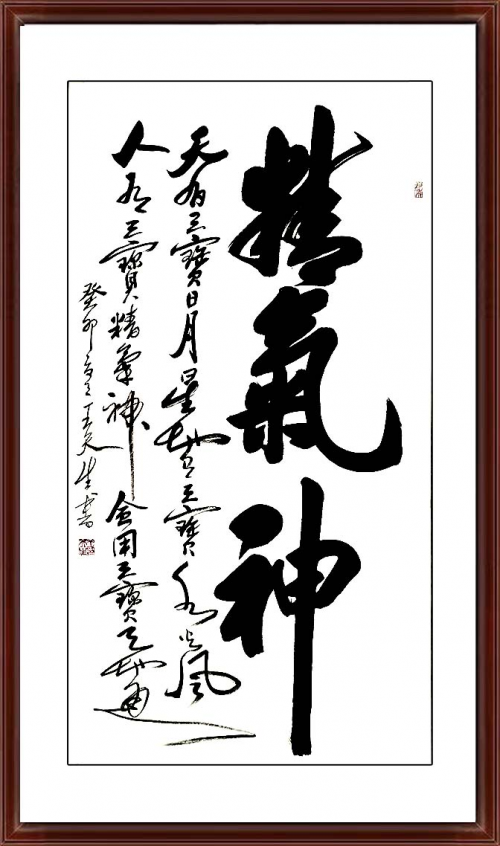 精氣神
天有三寶日月星地有三寶水火風
人有三寶精氣神会用三寶天地通
癸卯王天生書